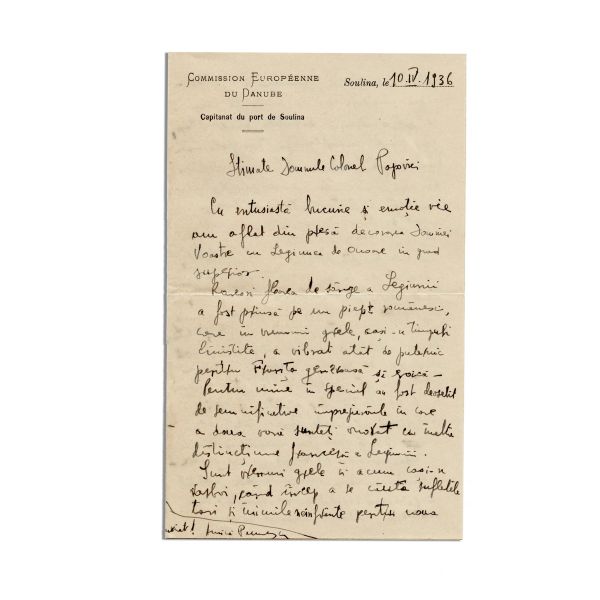 COMMISSION EUROPÉENNE
DU DANUBE
Capitanat du port de Soulina
Soulina, le 10.IV.1936
Stimate Domnule Colonel Popovici
Cu entusiastă bucurie și emoție vie
am aflat din presă decorarea Domniei
Voastre cu Legiunea de Onoare în grad
superior.
floarea de sânge a Legiunii
a fost prinsă pe un piept românesc,
care în vremuri grele, ca și-n timpuri
liniștite, a vibrat atât de puternic
pentru Franța generoasă și eroică —
Pentru mine în special au fost deosebit
de semnificative împrejurările în care
a doua oară sunteți onorat cu înalta
distincțiune franceză a Legiunii.
Sunt vremuri grele și acum ca și-n
război, când încep a se căuta sufletele
tari și inimile neînfrânte pentru noua